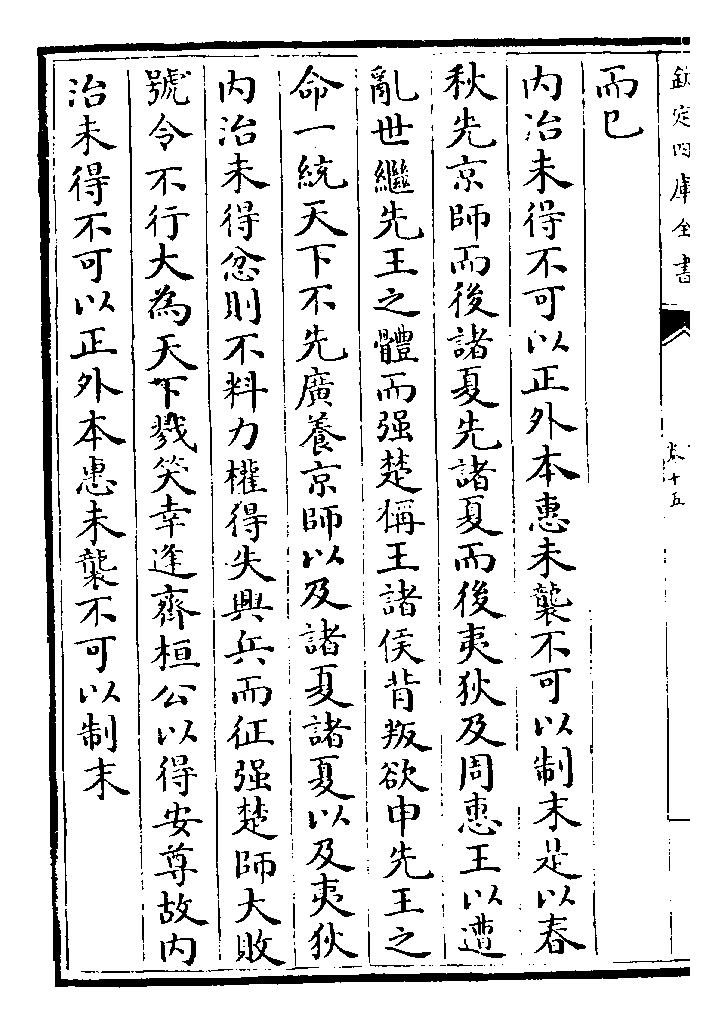 欽定四庫全書
卷十五
而已
內治未得不可以正外本惠未襲不可以制末是以春
秋先京師而後諸夏先諸夏而後夷狄及周惠王以遭
亂世繼先王之體而强楚稱王諸侯背叛欲申先王之
命一統天下不先廣養京師以及諸夏諸夏以及夷狄
內治未得忿則不料力權得失興兵而征强楚師大敗
號令不行大為天下戮笑幸逢齊桓公以得安尊故內
治未得不可以正外本惠未襲不可以制末